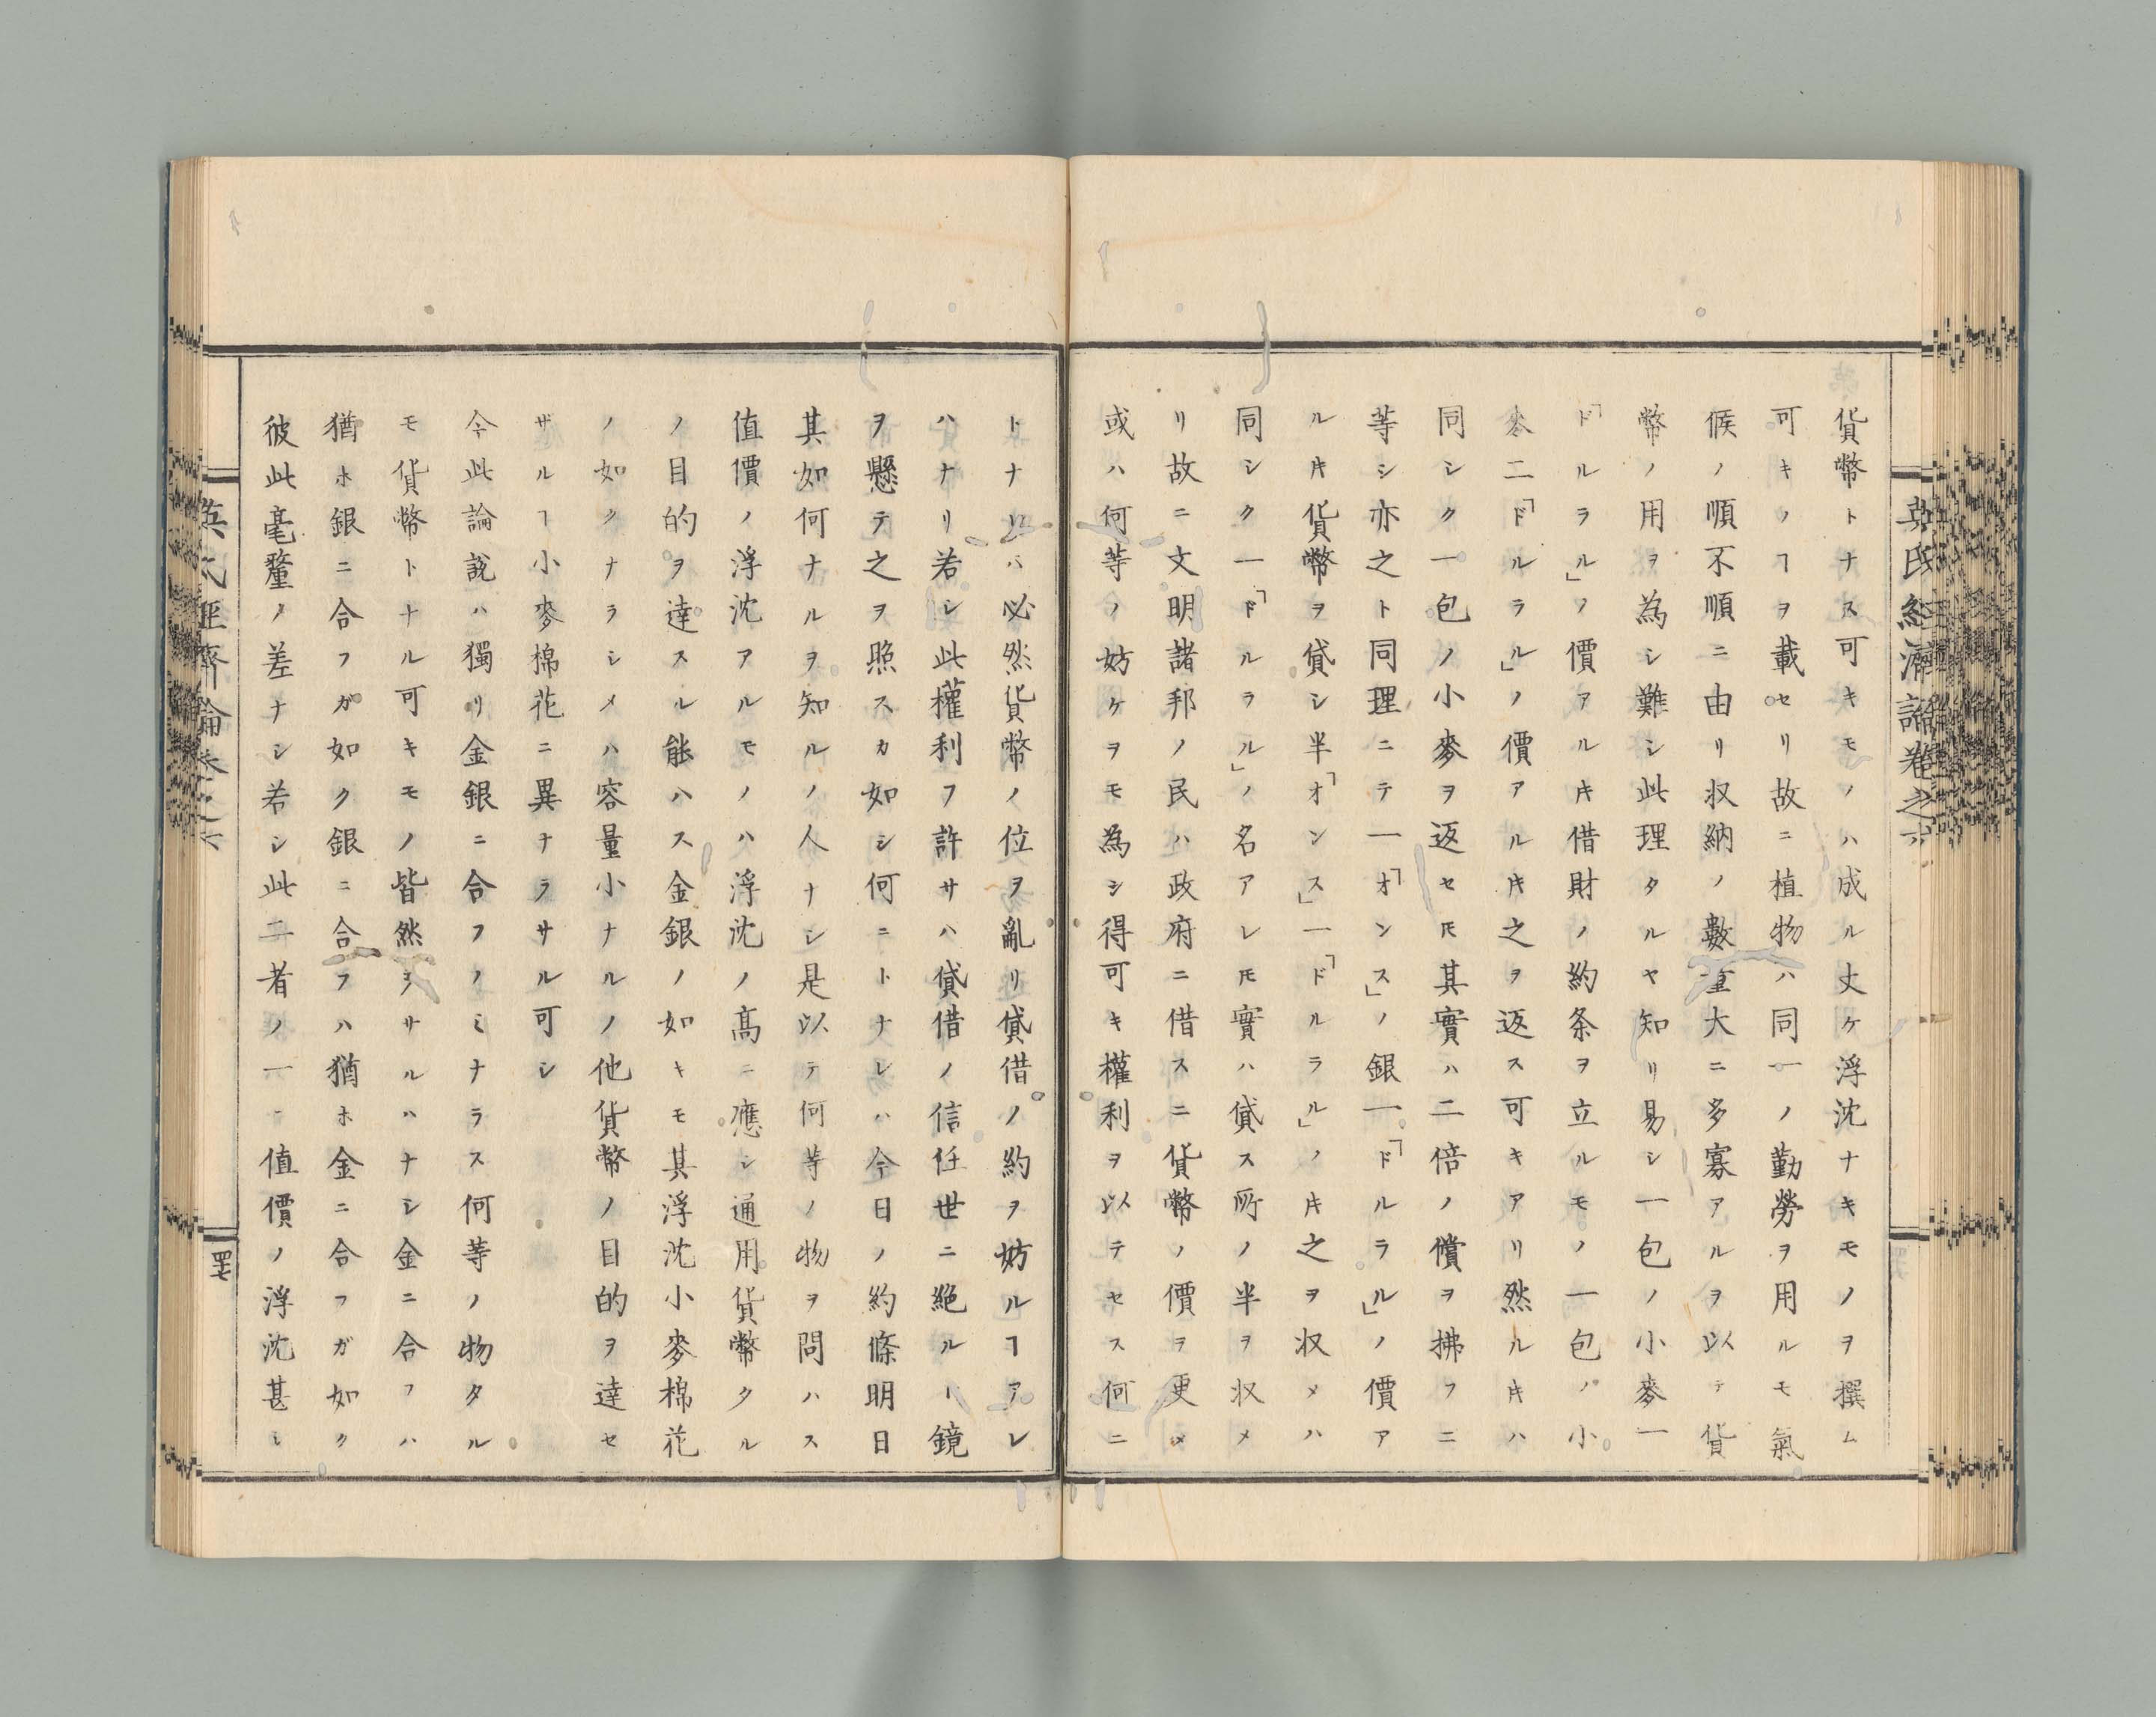 英氏經濟論卷之六
貨幣トナス可キモノハ成ル丈ケ浮沈ナキモノヲ撰ム
可キノヿヲ載セリ故ニ植物ハ同一ノ勤勞ヲ用ルモ氣
候ノ順不順ニ由リ収納ノ數量大ニ多寡アルヲ以テ貨
幣ノ用ヲ為シ難シ此理タルヤ知リ易シ一包ノ小麥一
「ドルラル」ノ價アルキ借財ノ約条ヲ立ルモノ一包ノ小
麥二「ドルラル」ノ價アルキ之ヲ返ス可キアリ然ルキハ
同シク一包ノ小麥ヲ返セ𪜈其實ハ二倍ノ償ヲ拂フニ
等シ亦之ト同理ニテ一「オンス」ノ銀一「ドルラル」ノ價ア
ルキ貨幣ヲ貸シ半「オンス」一「ドルラル」ノキ之ヲ収メハ
同シク一「ドルラル」ノ名アレ𪜈實ハ貸ス所ノ半ヲ収メ
リ故ニ文明諸邦ノ民ハ政府ニ借スニ貨幣ノ價ヲ更メ
或ハ何等ノ妨ケヲモ為シ得可キ權利ヲ以テセス何ニ
トナレハ必然貨幣ノ位ヲ亂リ貸借ノ約ヲ妨ルヿアレ
ハナリ若シ此權利フ許サハ貸借ノ信任世ニ絶ルヿ鏡
ヲ懸テ之ヲ照スカ如シ何ニトナレハ今日ノ約條明日
其如何ナルヲ知ルノ人ナシ是以テ何等ノ物ヲ問ハス
値價ノ浮沈アルモノハ浮沈ノ高ニ應シ通用貨幣タル
ノ目的ヲ達スル能ハス金銀ノ如キモ其浮沈小麥棉花
ノ如クナラシメハ容量小ナルノ他貨幣ノ目的ヲ達セ
ザルヿ小麥棉花ニ異ナラサル可シ
今此論説ハ獨リ金銀ニ合フノミナラス何等ノ物タル
モ貨幣トナル可キモノ皆然ラサルハナシ金ニ合フハ
猶ホ銀ニ合フガ如ク銀ニ合フハ猶ホ金ニ合フガ如ク
彼此毫釐ノ差ナシ若シ此二者ノ一ニ値價ノ浮沈甚シ
英氏經濟論卷之六
四十七